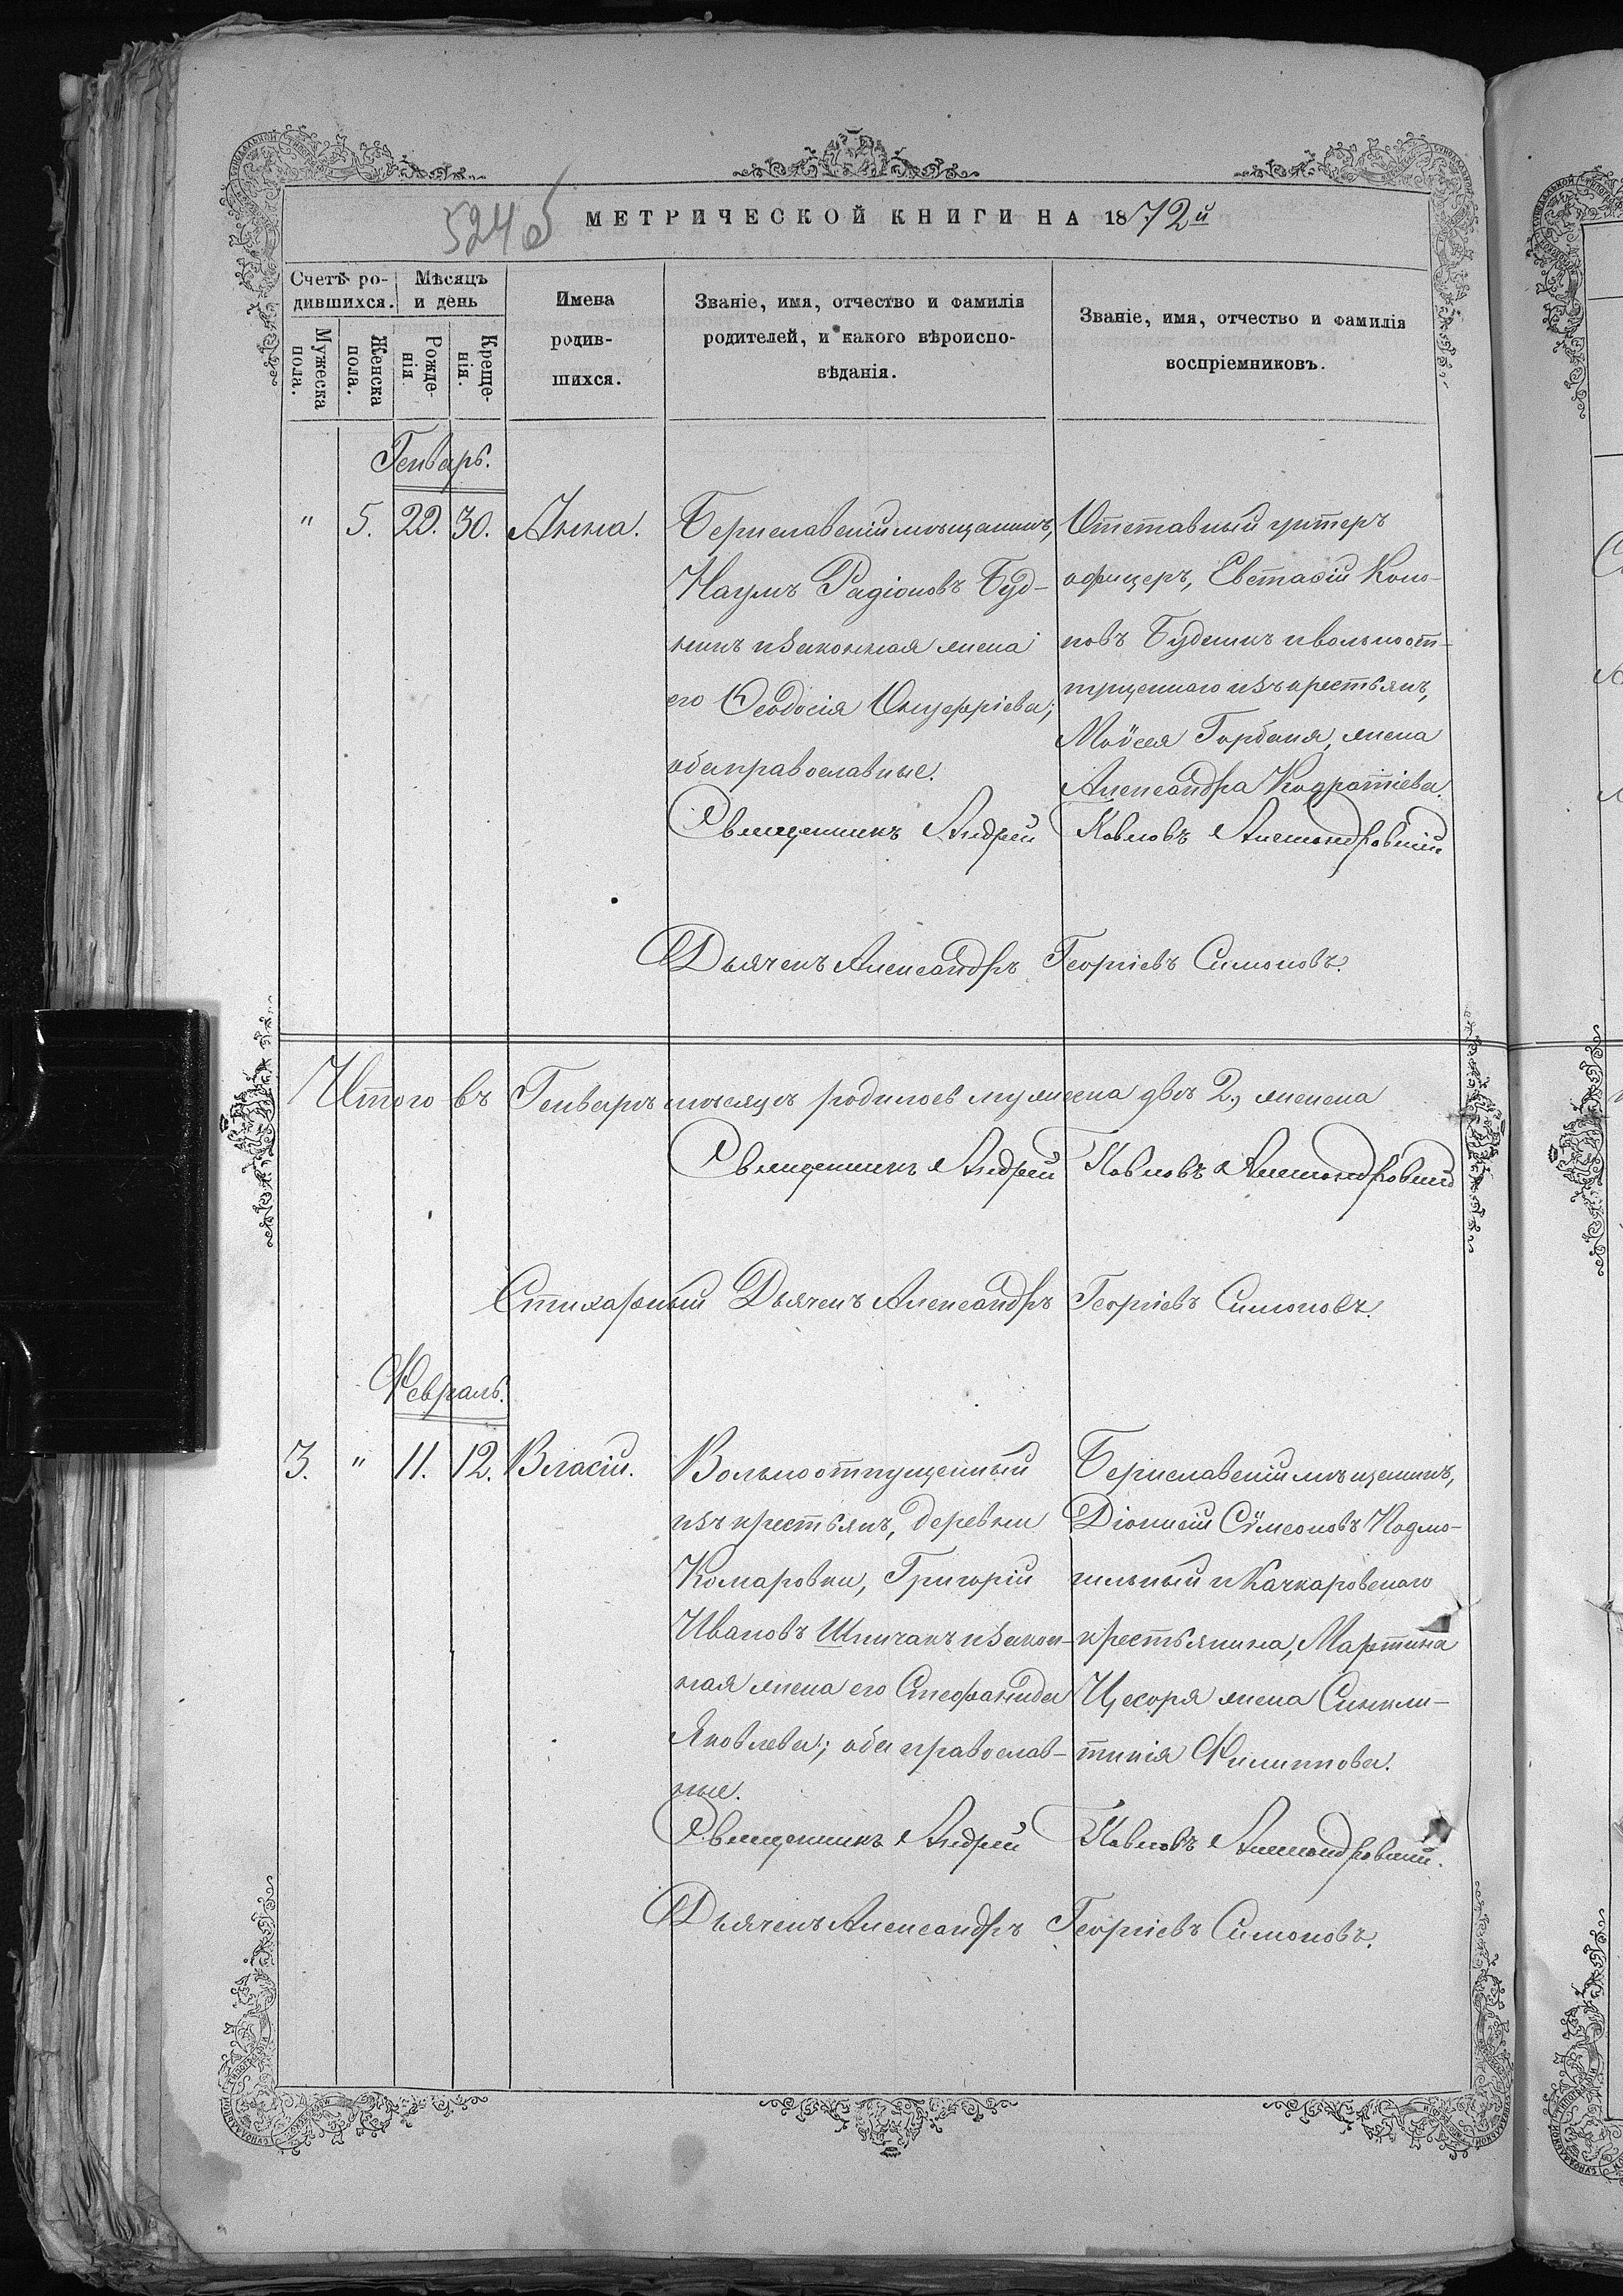 524 об
МЕТРИЧЕСКОЙ КНИГИ НА 1872й
Счетъ ро-
дившихся.
Мѣсяцъ
и день
Мужеска
пола.
Женска
пола.
Рожде-
нія
Креще-
нія.
Имена
родив-
шихся.
Званіе, имя, отчество и фамилія
родителей, и какого вѣроиспо-
вѣданія.
Званіе, имя, отчество и фамилія
воспріемниковъ.
Генварь.
" 5. 29. 30. Анна.
Бериславскій мѣщанинъ,
Наумъ Радіоновъ Буд-
никъ и законная жена
его Ѳеодосія Онуфріева;
оба православные.
Отставный унтеръ
офицеръ, Евстафій Коно-
новъ Будникъ и вольноот-
пущеннаго изъ крестьянъ,
Моѵсея Горбаня, жена
Александра Кодратіева.
Священникъ Андрей Павловъ Александровскій
Дьячекъ Александръ Георгіевъ Симоновъ.
Итого въ Генварѣ мѣсяцѣ родилось мужеска двѣ 2, женска
Священникъ Андрей Павловъ Александровскій
Стихарный Дьячекъ Александръ Георгіевъ Симоновъ.
Февраль.
3. " 11. 12. Власій.
Вольноотпущенный
изъ крестьянъ, деревни
Комаровки, Григорій
Ивановъ Шпичакъ и закон-
ная жена его Стефанида
Яковлева; оба православ-
ные.
Бериславскій мѣщанинъ,
Діонисій Сѵмеоновъ Подмо-
гильный и Качкаровскаго
крестьянина, Мартина
Цесоря жена Синкли-
тикія Филиппова.
Священникъ Андрей Павловъ Александровскій.
Дьячекъ Александръ Георгіевъ Симоновъ.